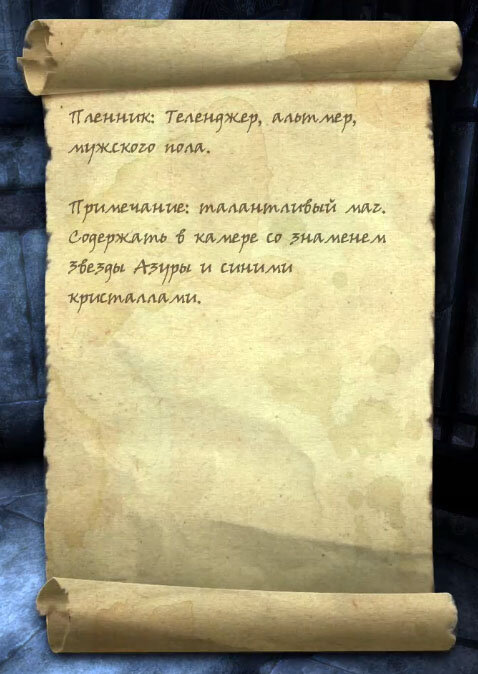 Пленник: Теленджер, альтмер,
мужского пола.
Примечание: талантливый маг.
Содержать в камере со знаменем
Звезды Азуры и синими
кристаллами.